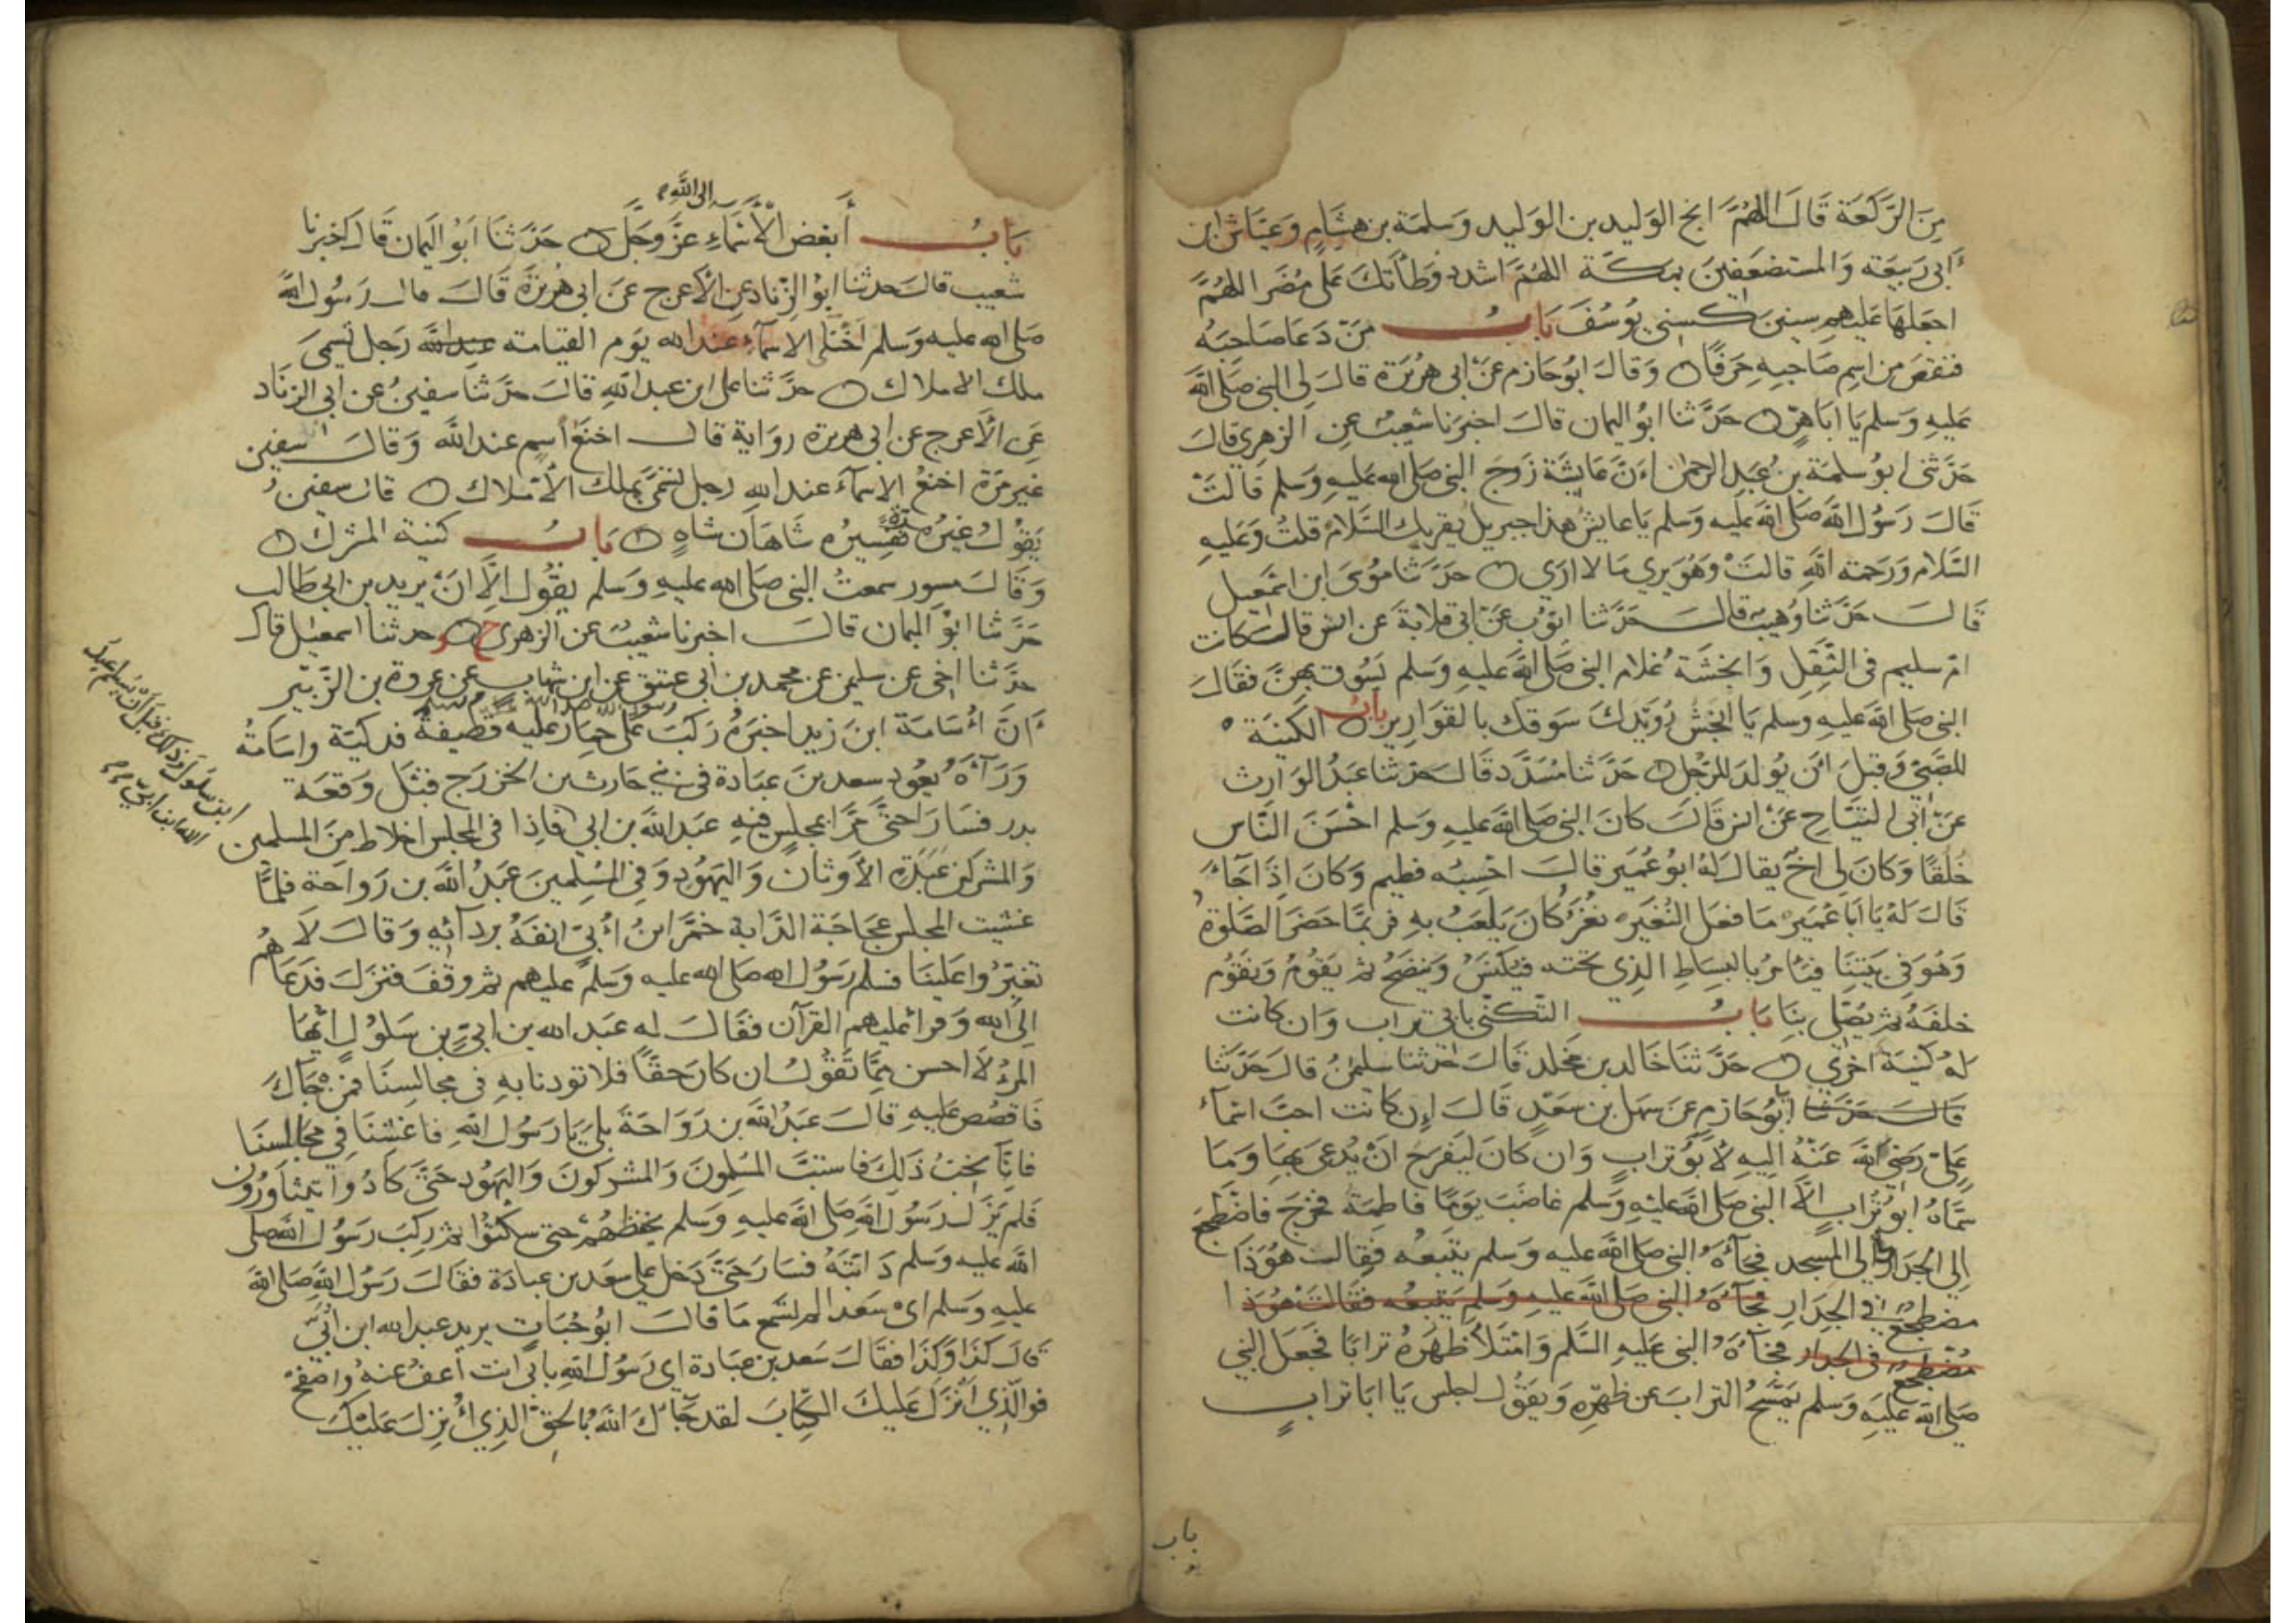 مِنَ الرَّكعَة قَالَ اللهُمَّ انج الوَليد بن الوَليد وَسَلمَة بن هشَامٍ وَعيَّاش ابن
أبى رَبيعَته وَالمستضعَفينَ بمكَّة اللهُمَّ اشدد وَطأَتَكَ عَلى مُضَر اللهُمَّ
اجعَلهَا عَليهم سنينَ كسِنى يوُسُفَ بَابُ مَنْ دَعَا صَاحبَهُ
فنقصَ مِن اسمِ صَاحبِهِ حَرفًا وَقالَ ابوُ حَازم عَنْ ابى هرُيَرة قالَ لى النبى صَلى الله
عَليهِ وَسَلم يَا ابَا هِرٍّ حَدَّثنا ابوُ اليمان قالَ اخبرَنا شعَيبٌ عنِ الزهرى قالَ
حَدَّثنى ابوُ سلمَة بن عَبدِ الرحمٰن انَّ عَايشَة زَوجَ النبى صَلى الله عَليهِ وَسَلم قالتْ
قالَ رَسُول الله صَلى الله عَليه وَسَلم يَا عايشُ هذا جبريل يقريك السَّلام قلتُ وَعَليهِ
السَّلام وَرَحمَته اللهِ قالتْ وَهُوَ يرى مَا لا ارَى حَدَّثنا موُسَى ابن اسمٰعيل
قَالَ حَدَّثنا وُهَيب قالَ حَدَّثنا ايوّب عَنْ ابى قلابَةَ عَن انس قالَ كانت
امّ سليم فى الثَّقَلِ وَانجشَة غلام النبى صَلى الله عَليهِ وَسَلم يَسُوق بهِنَّ فقَالَ
النبى صَلى الله عَليهِ وَسَلم يَا انجَشُ رُوَيْدكَ سَوقك بالقوَارير بابُ الكنيَة
للصَّبىّ وَقبلَ انْ يوُلَدَ للرَّجُل حَدَّثنا مُسَدَّد قالَ حَدثنا عَبدُ الوَارث
عَن ابى التيَّاح عَنْ انس قالَ كانَ النبى صَلى الله عَليهِ وَسَلم احْسَنَ النَّاس
خُلقًا وَكانَ لى اخٌ يقال لهُ ابوُ عُمَير قالَ احسِبُه فطيم وَكانَ اذَا جَاءَ
قَالَ لهُ يَا ابَا عُميَر مَا فعَل النُغيَر نغَرٌ كانَ يَلعَبُ بهِ فربمَّا حَضَر الصَّلوة
وَهوَ فى بَيتنَا فيَامرُ بالبسَاطِ الذِى تحته فيُكنَسُ وَينضَحُ ثم يَقومُ وَنَقوُم
خلفَهُ ثم يُصَلى بنَا بَابُ التَّكنّى بابى تراب وَان كانت
لهُ كُنيَة اخرٰى حَدَّثنَا خَالد بن مَخلد قَالَ حَدثنا سليمٰنُ قالَ حَدَّثنَا
قالَ حَدَّثنا ابوُ حَازِم عَن سَهل بن سَعدٍ قَالَ اِن كانت احبَّ اسمَاء
عَلىّ رَضىَ الله عَنْهُ اليهِ لأبوُ ترابٍ وَان كانَ ليَفرَحُ انْ يُدعَى بهَا وَمَا
سَمَّاهُ ابوُ تُراب الاَّ النبى صَلى الله عليْهِ وَسَلم غاضَبَ يَومًا فاطِمَة فخرَجَ فاضطجَعَ
اِلى الجدَار الى المسجد فجَآءَهُ النبى صَلى الله عَليه وَسَلم يتبَعُه فقالت هوَ ذَا
مضطجعٌ فى الجدَارِ فجَآءَهُ النبى صَلى الله عَليهِ وَسَلم يَتبعُه فقالَت هوَ ذا
مُضطجعٌ فى الجدار فجَآءَهُ النبى عَليهِ السَّلم وَامتلأ ظهرُهُ ترابًا فجَعَل النبي
صَلى الله عَليهِ وَسَلم يَمْسَحُ الترابَ عَن ظهرِهِ وَيقوُل اجلس يَا ابَا ترابٍ
باب
الى اللهِ
بَابُ أَبغضِ الْأَسْمَاءِ عزَّ وَجَلَّ حَدَّثنَا ابوُ اليَمان قَالَ اخبرنا
شعيب قالَ حدثنا ابوُ الزنادِ عنِ الأعرج عَن ابى هُريرَة قَالَ قال رَسُول الله
صَلى الله عليهِ وَسَلم اخنَى الاسمَآءِ عند الله يوَم القيامَة عند الله رَجل تسمى
ملك الاملاك حدَّثنا على ابن عبد اللهِ قالَ حدَّثنا سفينُ عن أبى الزنَاد
عَن الأعرج عن ابى هريرة روَاية قال اخنَعُ اسمٍ عند الله وَقالَ سفين
غيرَ مَرَّة اخنَعُ الاسمآء عند الله رجل تسَمَّى بمَلك الأمْلاك قال سفينُ
يَقوُلُ غيرُه تفسِيرُه شَاهَان شاهٍ بَابُ كنية المشرك
وَقَالَ مسور سمعتُ النبى صَلى الله عليهِ وَسَلم يقوُل اِلاَّ انْ يريد بن ابى طَالب
حَدَّثنا ابوُ اليمان قالَ اخبرنا شعيبٌ عن الزهرى ح وحدثنا اسمعيٰل قالَ
حدَّثنا اخى عن سليمن عن محمد بن ابى عتيق عن ابن شهاب عن عروة بن الزبير
رسول الله صلى الله عليه وسلم
انَّ أُسَامَة ابنَ زيد اخبرَهُ رَكبَ عَلى حِمَارٍ عليه قطيفةٌ فدكيّة واسَامَةُ
وَرَآءَهُ يعُود سعد بنَ عبَادة فى بنى حَارث بن الخزرَج قبْل وَقعَة
بدر فسَارَا حتىَّ مَرَّا بمجلسٍ فيهِ عَبد الله بن ابى فاِذا فى المجلس اخلاط منَ المسلمين
وَالمشركين عَبَدَةِ الأوثَان وَاليَهُودِ وَفى المُسْلمينَ عَبدُ الله بن رَوَاحَة فلمَّا
غشيت المجلس عجَاجَة الدَّابة خمَّر ابنُ أُبىّ انفَهُ بردآئِهِ وَقالَ لَا
تغبِّرُوا عَلينَا فسلم رَسُول الله صَلى الله عليه وَسَلم عليهم ثم وقفَ فنزَلَ فدَعَاهُم
اِلى الله وَقرأ عَليهم القرآن فقَالَ له عَبد الله بن ابىّ بن سَلولٍ ايّهَا
المَرْءُ لاَ احسن ممَّا تقوُل ان كان حقًّا فلا توذنا بهِ فى مجالسِنا فمَن جَآكَ
فَاقصُص عَليهِ قالَ عَبدُ الله بن رَوَاحَة بلىَ يَا رَسُول الله فاغشنَا فى مجَالسنَا
فاِنَّا نحبُّ ذَلِكَ فاستبَّ المسْلمونَ وَالمشركونَ وَاليَهُود حَتىَّ كادُوا يتثاورُون
فَلم يَزَل رَسُول الله صَلى الله عَليهِ وَسَلم يخفضهُمْ حتى سكتوُا ثم رَكبَ رَسُول الله صَلى
الله عَليه وَسَلم دَابّتَهُ فسَارَ حَتىَّ دَخل على سَعد بن عبادَة فقَالَ رَسُول الله صَلى الله
عليهِ وَسَلم اىْ سَعد الم تسْمع مَا قالَ ابوُ حُبَابٍ يريد عبد الله ابن أُبىّ
قَالَ كذَا وَكذَا فقَالَ سَعد بن عبَادة اى رَسُول اللهِ بابى انت أعفُ عنهُ واصْفحْ
فوَالَّذِى أنْزَل عَليكَ الكِتَابَ لقد جَآءَ الله بالحَقّ الذِى أُنزِلَ عَليْكَ
ابن سلول وذلك قبل أن يسلم عبد
الله ابن ابىّ